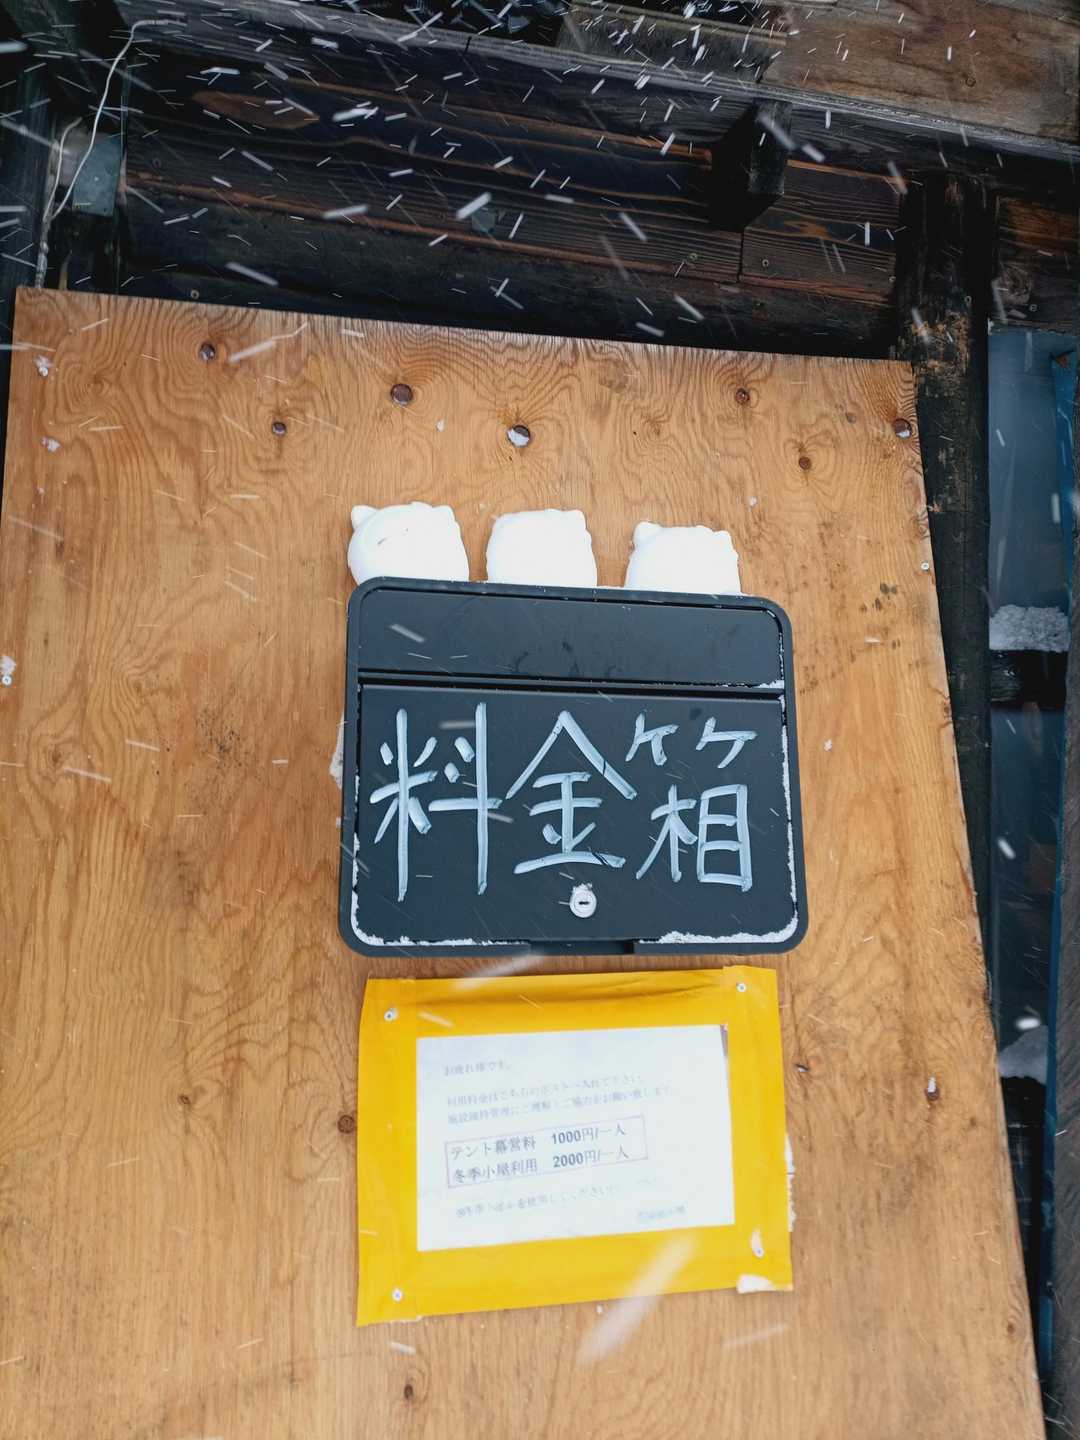 料金箱
お疲れ様です。
利用料金はこちらのポストへ入れて下さい。
施設維持管理にご理解とご協力をお願い致します。
テント幕営料 1000円/一人
冬季小屋利用 2000円/一人